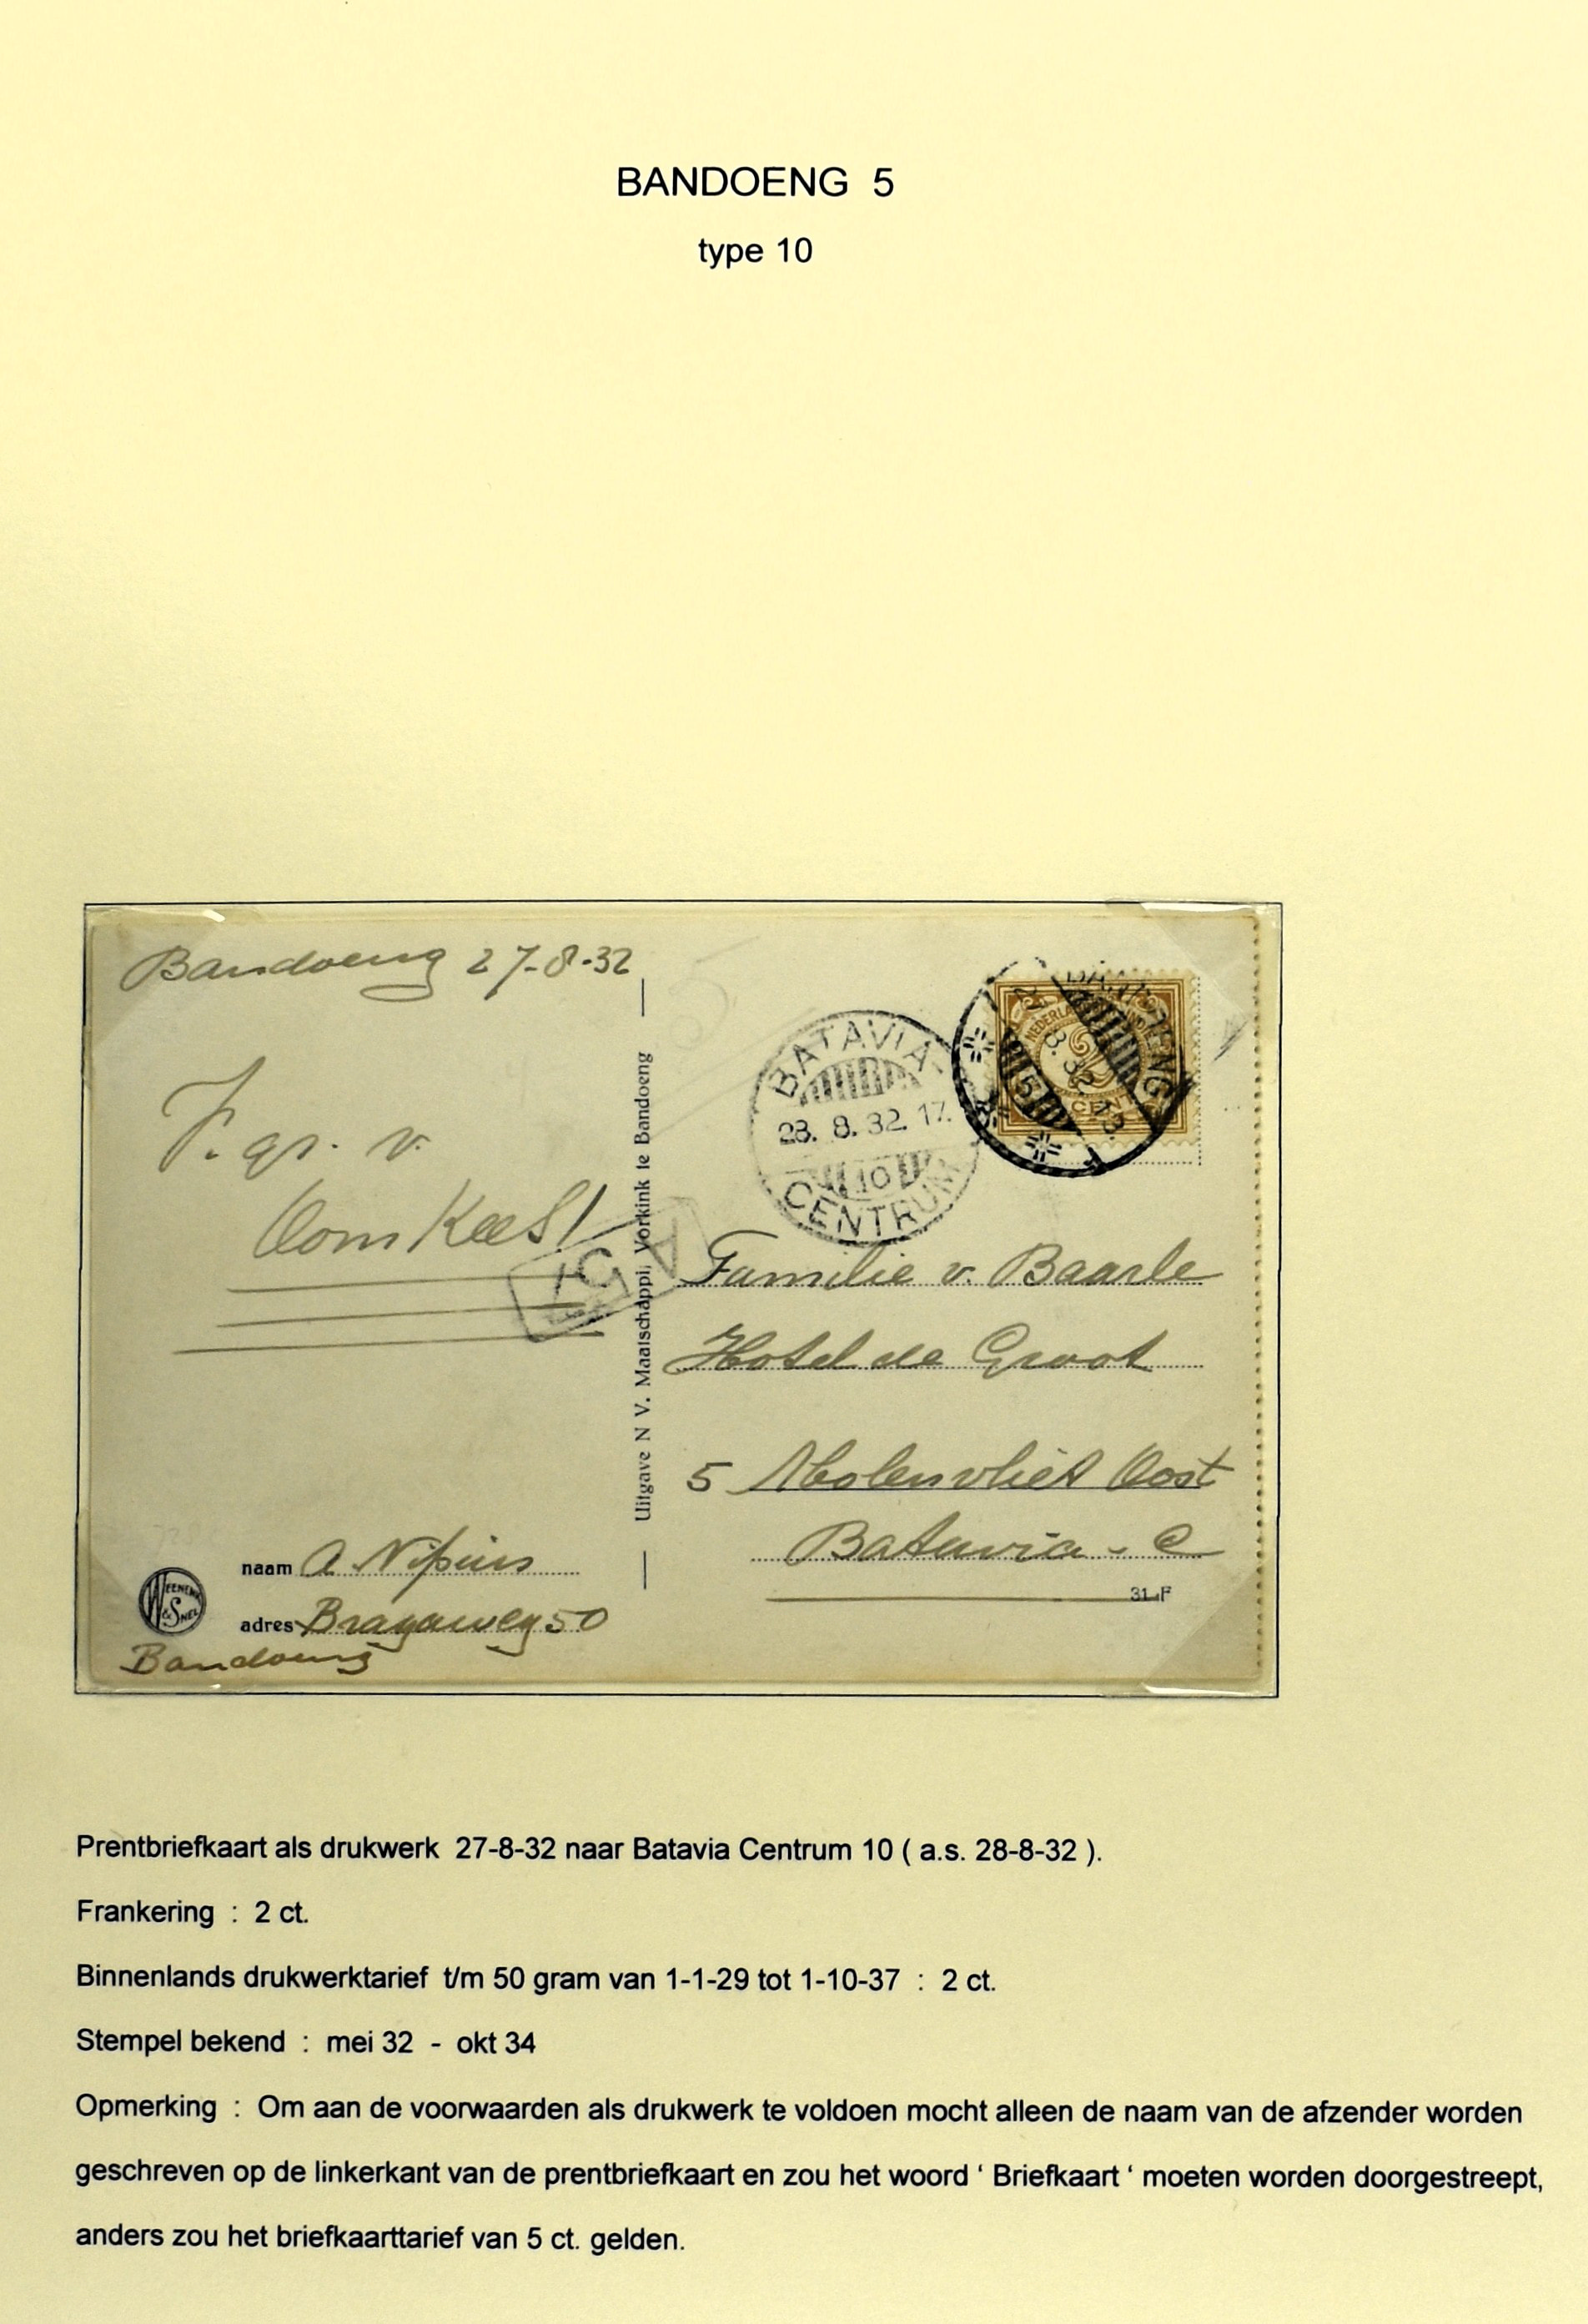 BANDOENG 5
type 10
Bandoeng 27-8-32
F. gr. v.
Oom Kees!
Uitgave N V. Maatschappij Vorkink te Bandoeng
BATAVIA
28. 8. 32. 17.
10
CENTRUM
BANDOENG
27. 8. 32. 13.
5
NEDERL.
CENT
Familie v. Baarle
Hotel de Groot
5 Molenvliet Oost
Batavia - C
31.F
WEENENK & SNEL
naam A. Nipius
adres Bragaweg 50
Bandoeng
Prentbriefkaart als drukwerk 27-8-32 naar Batavia Centrum 10 ( a.s. 28-8-32 ).
Frankering : 2 ct.
Binnenlands drukwerktarief t/m 50 gram van 1-1-29 tot 1-10-37 : 2 ct.
Stempel bekend : mei 32 - okt 34
Opmerking : Om aan de voorwaarden als drukwerk te voldoen mocht alleen de naam van de afzender worden
geschreven op de linkerkant van de prentbriefkaart en zou het woord ‘ Briefkaart ‘ moeten worden doorgestreept,
anders zou het briefkaarttarief van 5 ct. gelden.